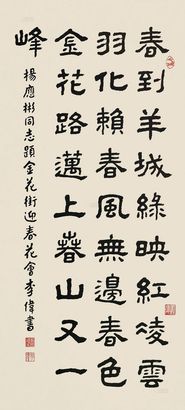 春到羊城綠映紅凌雲
羽化賴春風無邊春色
金花路邁上春山又一
峰
楊應彬同志題金花街迎春花會李偉書